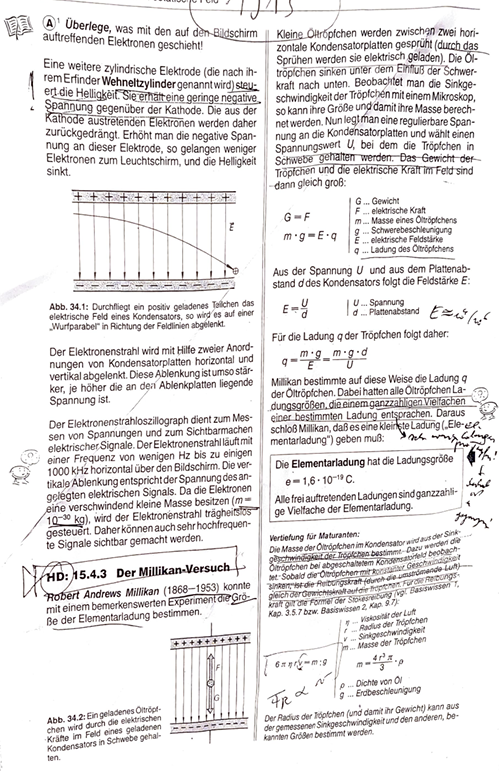 A Überlege, was mit den auf den Bildschirm
auftreffenden Elektronen geschieht!
Eine weitere zylindrische Elektrode (die nach ih-
rem Erfinder Wehneltzylinder genannt wird) steu-
ert die Helligkeit. Sie erhält eine geringe negative
Spannung gegenüber der Kathode. Die aus der
Kathode austretenden Elektronen werden daher
zurückgedrängt. Erhöht man die negative Span-
nung an dieser Elektrode, so gelangen weniger
Elektronen zum Leuchtschirm, und die Helligkeit
sinkt.
E
Abb. 34.1: Durchfliegt ein positiv geladenes Teilchen das
elektrische Feld eines Kondensators, so wird es auf einer
„Wurfparabel" in Richtung der Feldlinien abgelenkt.
Der Elektronenstrahl wird mit Hilfe zweier Anord-
nungen von Kondensatorplatten horizontal und
vertikal abgelenkt. Diese Ablenkung ist umso stär-
ker, je höher die an den Ablenkplatten liegende
Spannung ist.
Der Elektronenstrahloszillograph dient zum Mes-
sen von Spannungen und zum Sichtbarmachen
elektrischer Signale. Der Elektronenstrahl läuft mit
einer Frequenz von wenigen Hz bis zu einigen
1000 kHz horizontal über den Bildschirm. Die ver-
tikale Ablenkung entspricht der Spannung des an-
gelegten elektrischen Signals. Da die Elektronen
eine verschwindend kleine Masse besitzen (m =
10⁻³⁰ kg), wird der Elektronenstrahl trägheitslos
gesteuert. Daher können auch sehr hochfrequen-
te Signale sichtbar gemacht werden.
HD: 15.4.3 Der Millikan-Versuch
Robert Andrews Millikan (1868–1953) konnte
mit einem bemerkenswerten Experiment die Grö-
ße der Elementarladung bestimmen.
F
G
Abb. 34.2: Ein geladenes Öltröpf-
chen wird durch die elektrischen
Kräfte im Feld eines geladenen
Kondensators in Schwebe gehal-
ten.
Kleine Öltröpfchen werden zwischen zwei hori-
zontale Kondensatorplatten gesprüht (durch das
Sprühen werden sie elektrisch geladen). Die Öl-
tröpfchen sinken unter dem Einfluß der Schwer-
kraft nach unten. Beobachtet man die Sinkge-
schwindigkeit der Tröpfchen mit einem Mikroskop,
so kann ihre Größe und damit ihre Masse berech-
net werden. Nun legt man eine regulierbare Span-
nung an die Kondensatorplatten und wählt einen
Spannungswert U, bei dem die Tröpfchen in
Schwebe gehalten werden. Das Gewicht der
Tröpfchen und die elektrische Kraft im Feld sind
dann gleich groß:
G = F
m · g = E · q
G ... Gewicht
F ... elektrische Kraft
m ... Masse eines Öltröpfchens
g ... Schwerebeschleunigung
E ... elektrische Feldstärke
q ... Ladung des Öltröpfchens
Aus der Spannung U und aus dem Plattenab-
stand d des Kondensators folgt die Feldstärke E:
E = U/d
U ... Spannung
d ... Plattenabstand
Für die Ladung q der Tröpfchen folgt daher:
q = m · g/E = m · g · d/U
Millikan bestimmte auf diese Weise die Ladung q
der Öltröpfchen. Dabei hatten alle Öltröpfchen La-
dungsgrößen, die einem ganzzahligen Vielfachen
einer bestimmten Ladung entsprachen. Daraus
schloß Millikan, daß es eine kleinste Ladung („Ele-
mentarladung") geben muß:
Die Elementarladung hat die Ladungsgröße
e = 1,6 · 10⁻¹⁹ C.
Alle frei auftretenden Ladungen sind ganzzahli-
ge Vielfache der Elementarladung.
Vertiefung für Maturanten:
Die Masse der Öltröpfchen im Kondensator wird aus der Sink-
geschwindigkeit der Tröpfchen bestimmt. Dazu werden die
Öltröpfchen bei abgeschaltetem Kondensatorfeld beobach-
tet. Sobald die Öltröpfchen mit konstanter Geschwindigkeit
sinken, ist die Reibungskraft (durch die umströmende Luft)
gleich der Gewichtskraft auf die Tröpfchen. Für die Reibungs-
kraft gilt die Formel der Stokesreibung (vgl. Basiswissen 1,
Kap. 3.5.7 bzw. Basiswissen 2, Kap. 9.7):
6 π η r v = m · g
η ... Viskosität der Luft
r ... Radius der Tröpfchen
v ... Sinkgeschwindigkeit
m ... Masse der Tröpfchen
m = 4 r³ π/3 · ρ
ρ ... Dichte von Öl
g ... Erdbeschleunigung
Der Radius der Tröpfchen (und damit ihr Gewicht) kann aus
der gemessenen Sinkgeschwindigkeit und den anderen, be-
kannten Größen bestimmt werden.